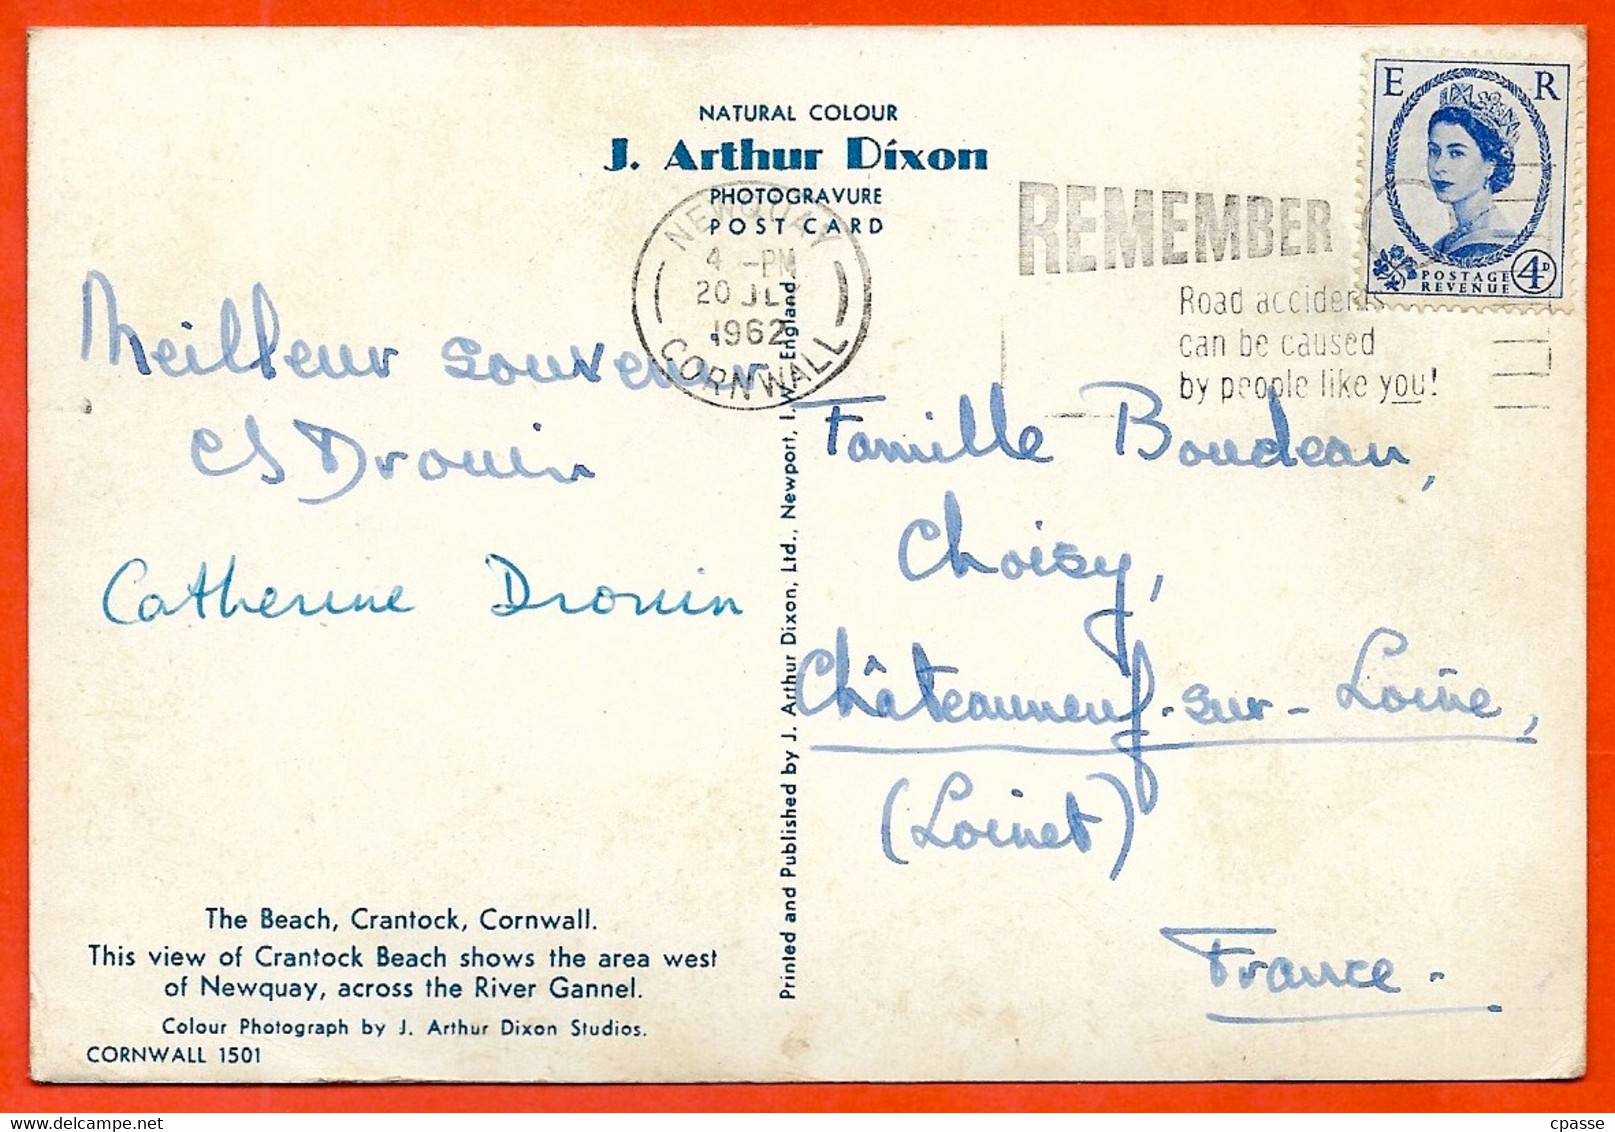 NATURAL COLOUR
J. Arthur Dixon
PHOTOGRAVURE
POST CARD
NEWQUAY
4 -PM
20 JLY
1962
CORNWALL
REMEMBER
Road accidents
can be caused
by people like you!
E R
POSTAGE
REVENUE
4D
Meilleur souvenir
Drouin
Catherine Drouin
Famille Boudeau,
Choisy,
Châteauneuf-sur-Loire,
(Loiret)
France.
Printed and Published by J. Arthur Dixon, Ltd., Newport, I.W., England
The Beach, Crantock, Cornwall.
This view of Crantock Beach shows the area west
of Newquay, across the River Gannel.
Colour Photograph by J. Arthur Dixon Studios.
CORNWALL 1501
cpasse